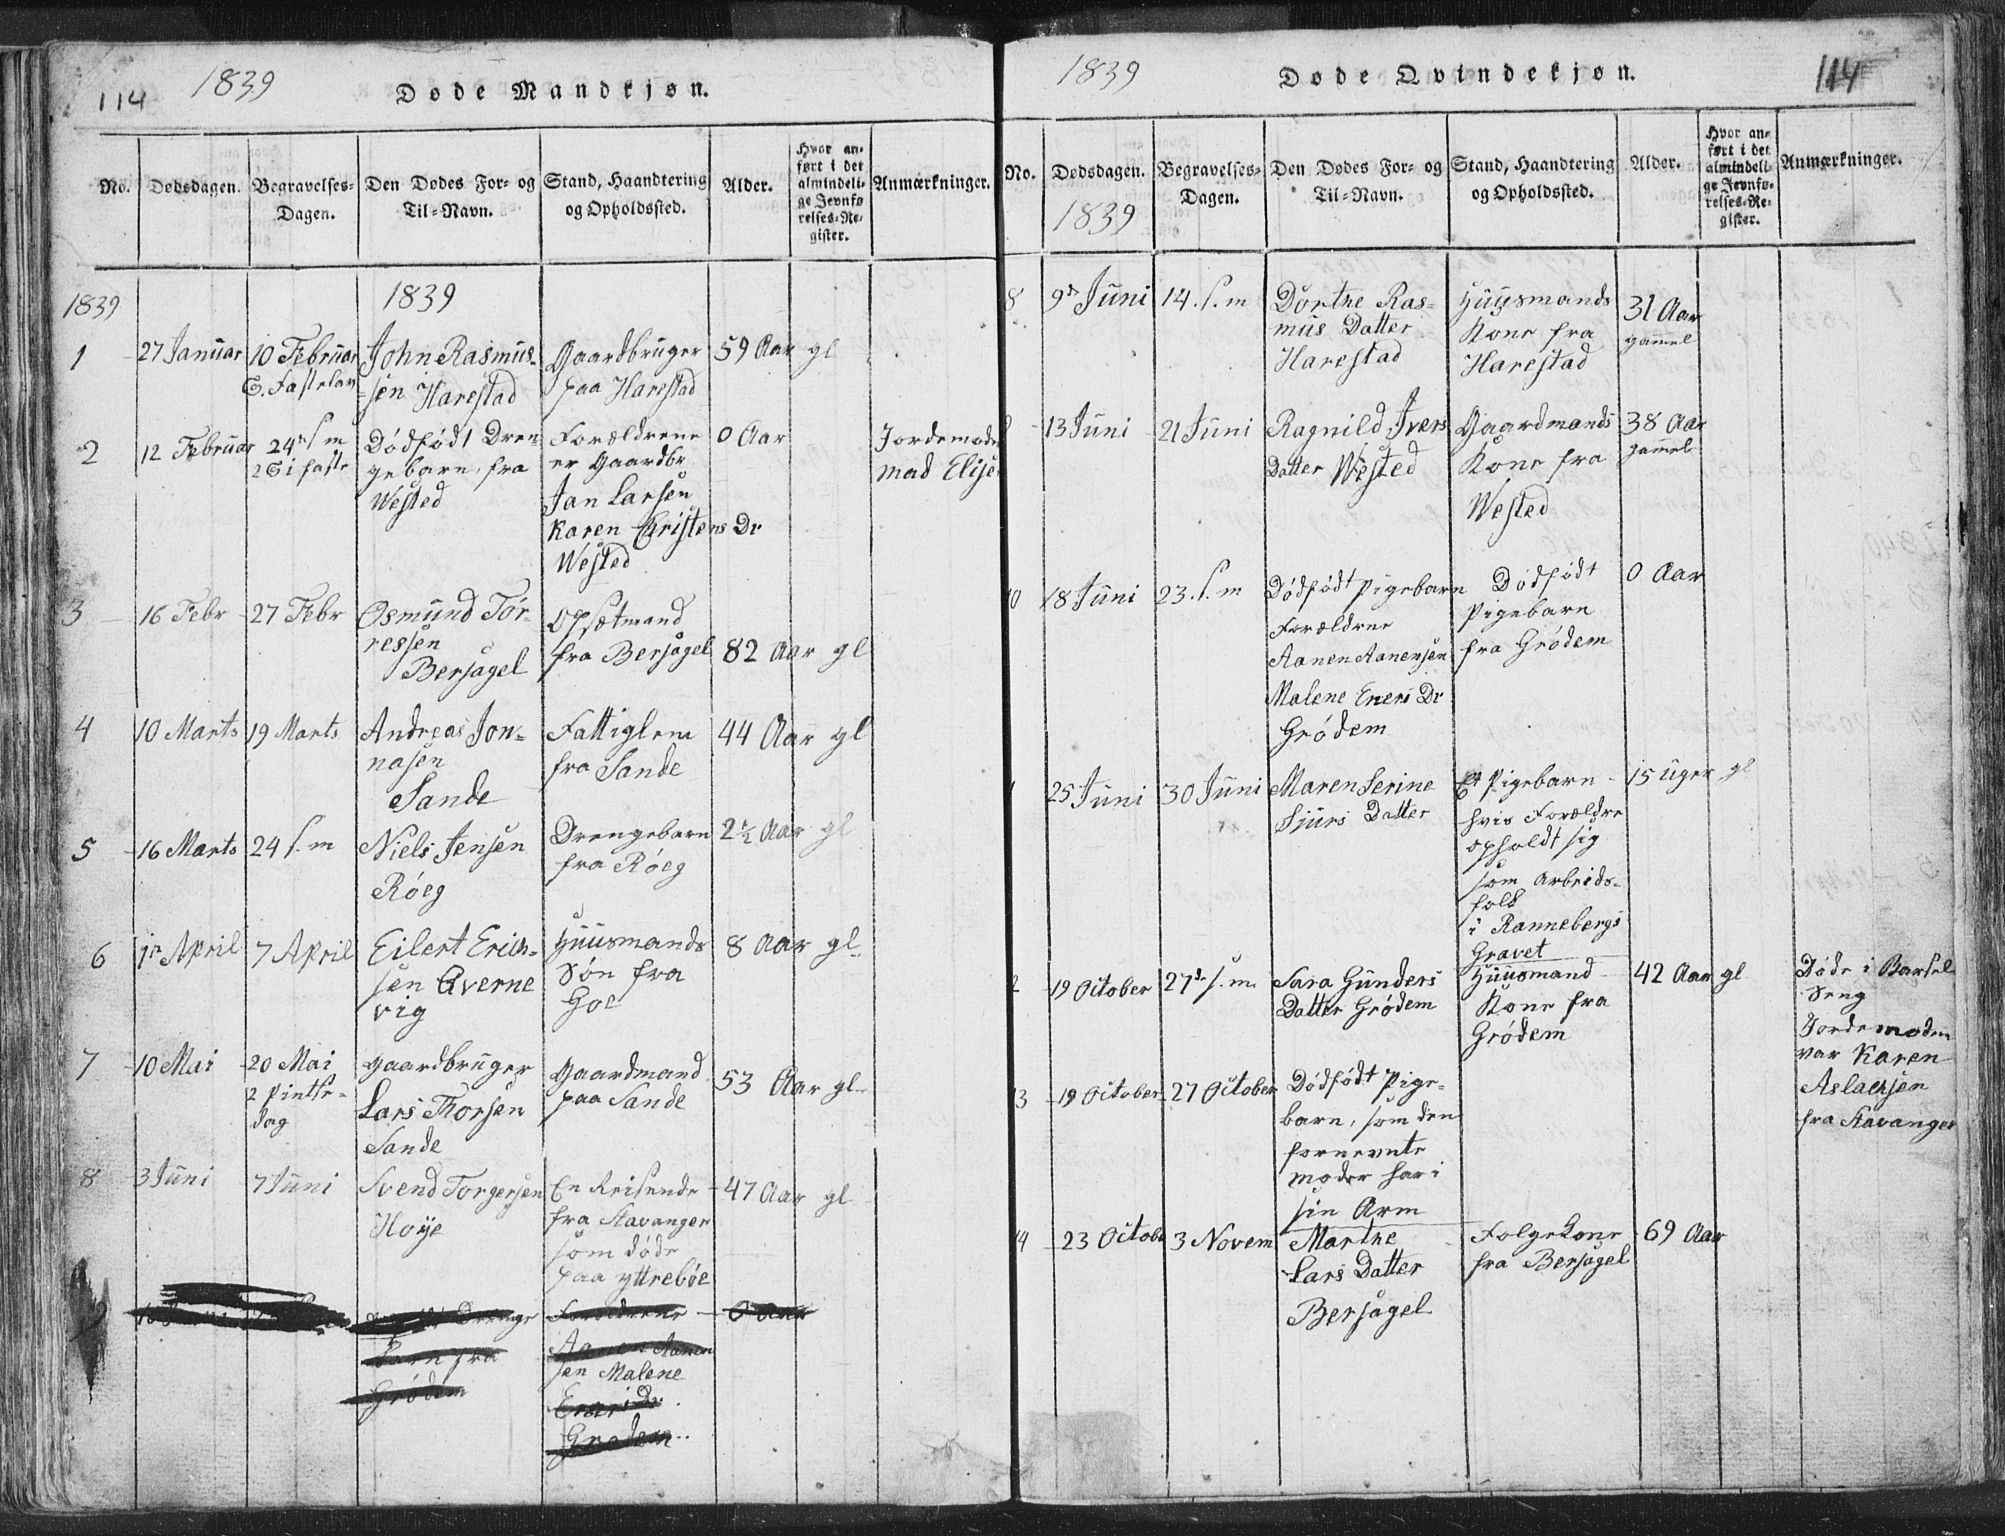 114 1839 Døde Mandkjøn.
No. Dødsdagen. Begravelses-Dagen. Den Dødes For- og Til-Navn. Stand, Haandtering og Opholdssted. Alder. Hvor anført i det almindelige Jevnførelses-Register. Anmærkninger.
1839 1839
1 27 Januar 10 Februar John Rasmus- Gaardbruger 59 Aar gl
S. Fastelav sen Harestad paa Harestad
2 12 Februar 24 s. m Dödfödt Dren Forældrene 0 Aar Jordemoder
2 S i faste gebarn, fra er Gaardbr mad Elise
Wested Jan Larsen
Karen Christens Dr
Wested
3 16 Febr 27 Febr Osmund Tör- Opsætmand
ressen fra Bersagel 82 Aar gl
Bersagel
4 10 Marts 19 Marts Andreas Jon- Fattiglem 44 Aar gl
nasen fra Sande
Sande
5 16 Marts 24 s. m Niels Jensen Drengebarn 2½ Aar gl
Röeg fra Röeg
6 1r April 7 April Eilert Erich- Huusmands 8 Aar gl
sen Qverne Sön fra
vig Goe
7 10 Mai 20 Mai Gaardbruger Gaardmand 53 Aar gl
2 Pintse- Lars Thorsen paa Sande
dag Sande
8 3 Juni 7 Juni Svend Torgersen En Reisende 47 Aar gl
Höÿe fra Stavanger
som döde
paa yttreböe
Drenge Forældrene 0 Aar
barn fra Aanen Aanen
Grödem sen Malene
Eners Dr
Grödem
1839 Døde Qvindekjøn. 114
No. Dødsdagen. Begravelses-Dagen. Den Dødes For- og Til-Navn. Stand, Haandtering og Opholdssted. Alder. Hvor anført i det almindelige Jevnførelses-Register. Anmærkninger.
1839
8 9de Juni 14. s. m Dorthe Ras- Huusmands 31 Aar
mus Datter Kone fra gammel
Harestad Harestad
13 Juni 21 Juni Ragnild Ivers Gaardmands 38 Aar
Datter Wested Kone fra gammel
Wested
10 18 Juni 23. s. m Dödfödt Pigebarn Dödfödt 0 Aar
Forældrene Pigebarn
Aanen Aanensen fra Grödem
Malene Eners Dr
Grödem
25 Juni 30 Juni Maren Serine Et Pigebarn 15 Uger gl
Sjurs Datter hvis Forældre
opholdt sig
som Arbeids-
folk
i Rannebergs
Gravet
2 19 October 27de s. m. Sara Gunders Huusmand 42 Aar gl Döde i Barsel
Datter Grödem Kone fra Seng
Grödem Jordemoderen
var Karen
Aslacksen
fra Stavanger
3 19 October 27 October Dödfödt Pige-
barn, som den
fornevnte
moder har i
sin Arm
14 23 Octobr 3 Novem Marthe Folgekone 69 Aar
Lars Datter fra Bersagel
Bersagel